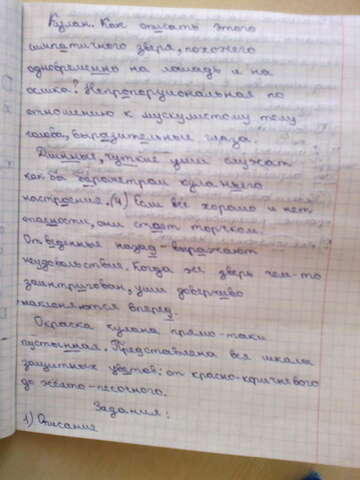 Кулан. Как описать этого
симпатичного зверя, похожего
одновременно на лошадь и на
ослика? Непропорциональная по
отношению к мускулистому телу
голова, выразительные глаза.
Длинные, чуткие уши служат
как бы барометром куланьего
настроения. (4) Если всё хорошо и нет
опасности, они стоят торчком.
Отведенные назад - выражают
неудовольствие. Когда же зверь чем-то
заинтригован, уши доверчиво
наклоняются вперед.
Окраска кулана прямо-таки
пустынная. Представлена вся шкала
защитных цветов: от красно-коричневого
до жёлто-песочного.
Задания:
1) Описание